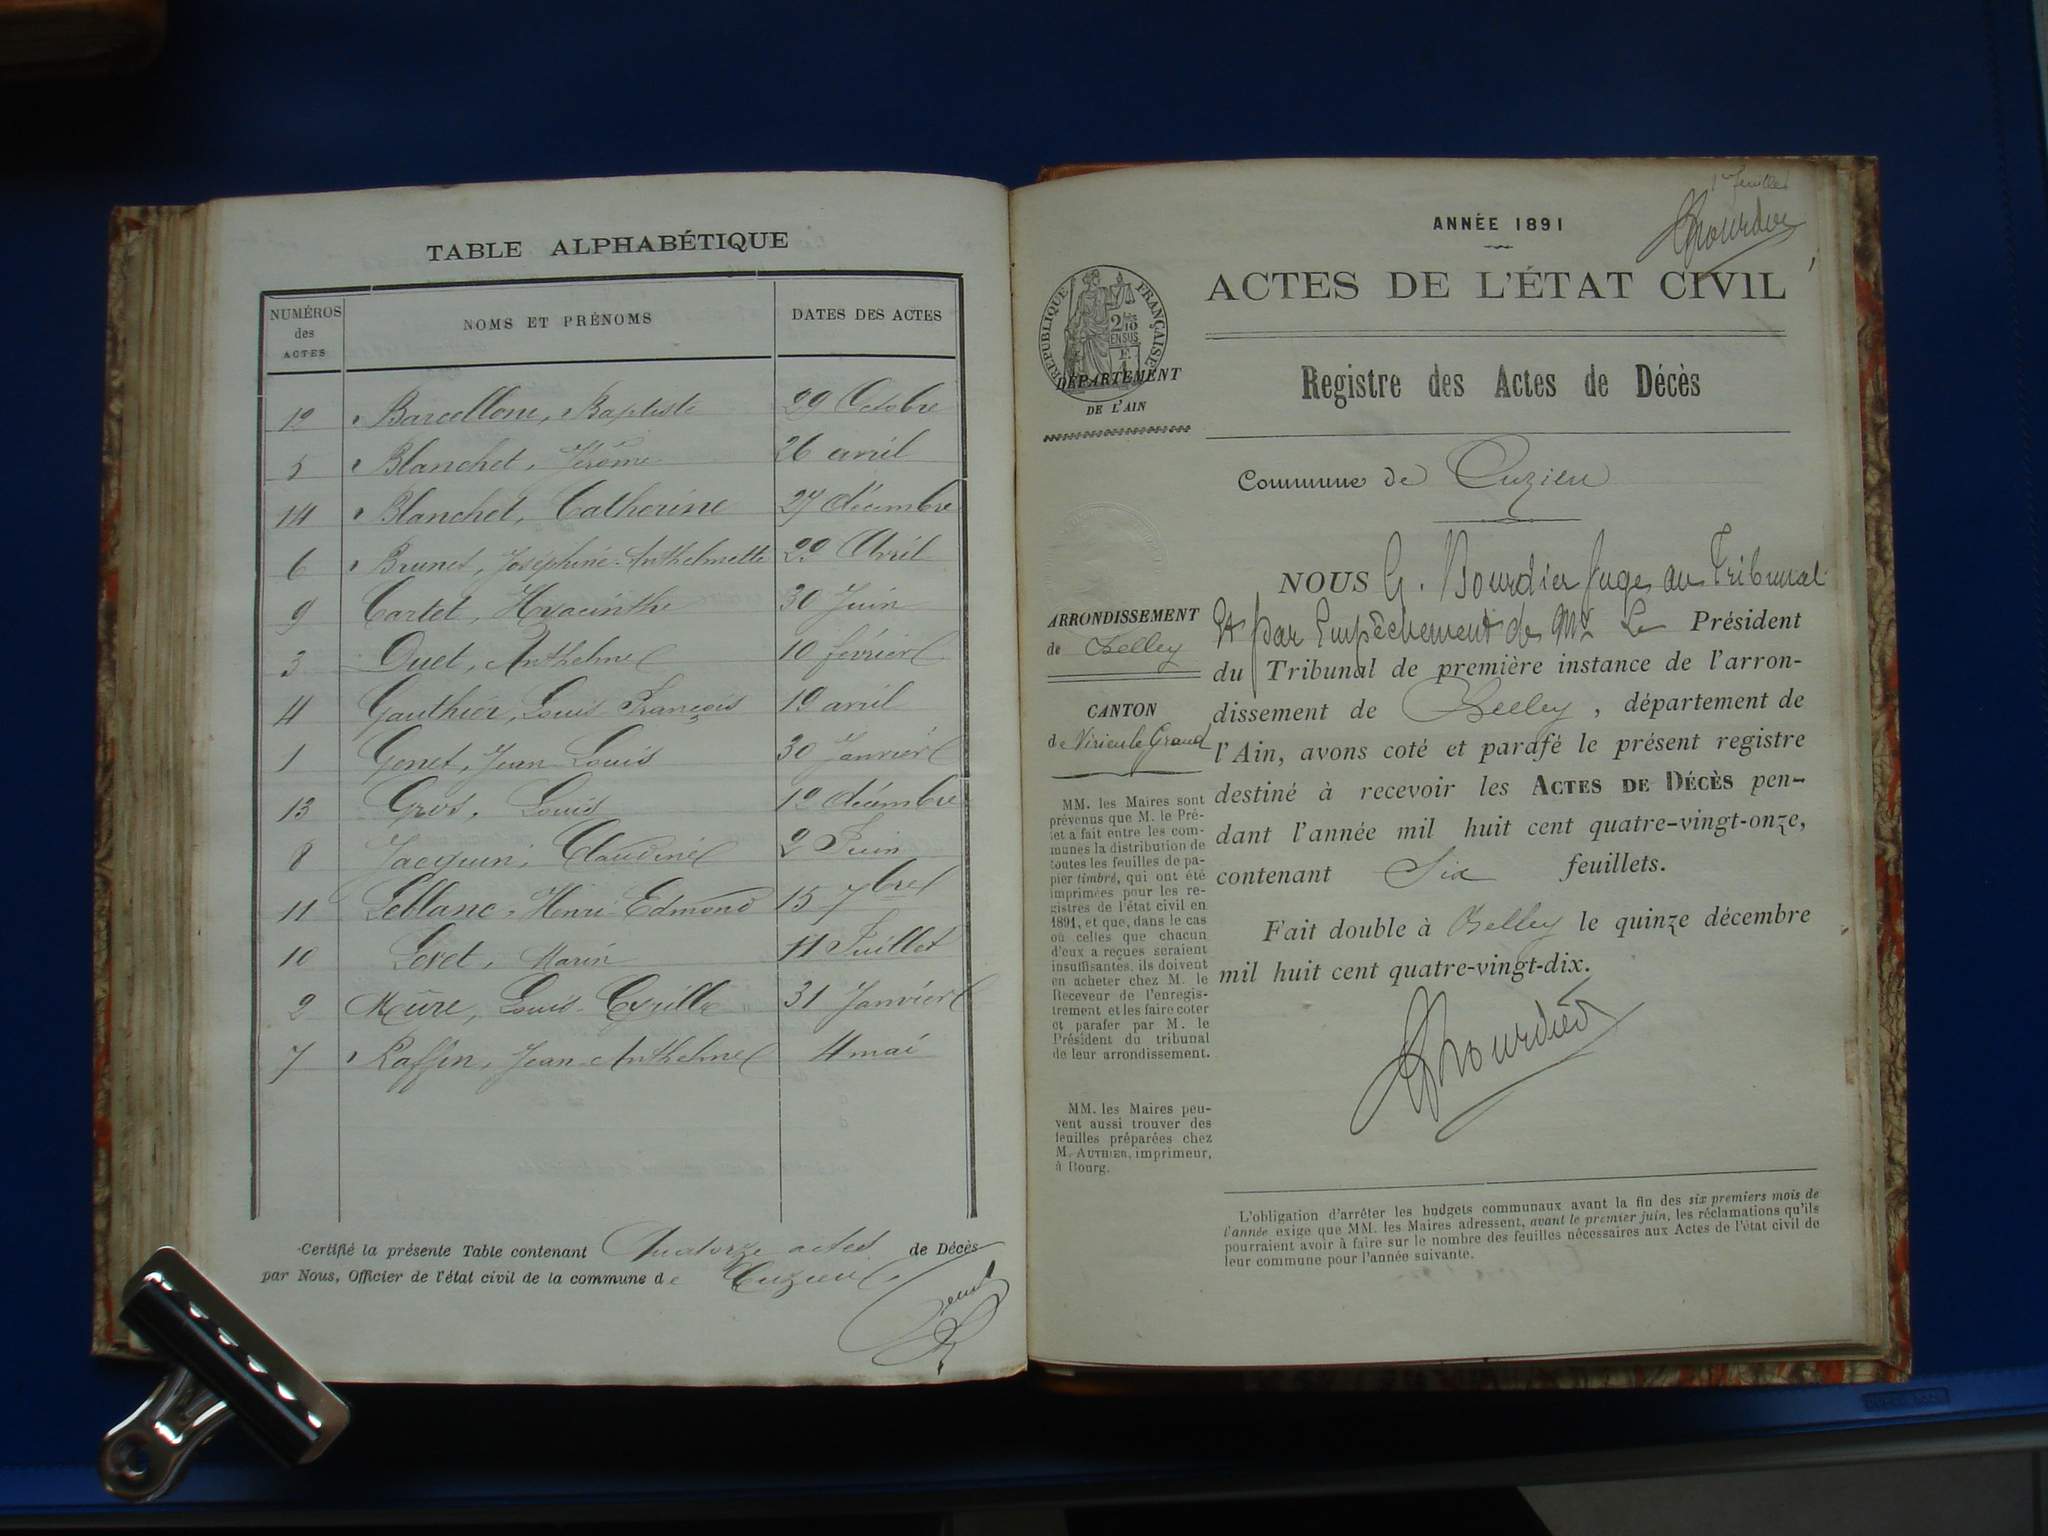 TABLE ALPHABÉTIQUE
NUMÉROS des ACTES NOMS ET PRÉNOMS DATES DES ACTES
12 Barcellone, Baptiste 29 Octobre
5 Blanchet, Jérôme 26 avril
14 Blanchet, Catherine 27 décembre
6 Brunet, Joséphine Anthelmette 29 Avril
9 Cartet, Hyacinthe 30 Juin
3 Duet, Anthelme 10 février
4 Gauthier, Louis François 19 avril
1 Genet, Jean Louis 30 Janvier
13 Gros, Louis 12 décembre
8 Jacquin, Claudine 2 Juin
11 Leblanc, Henri Edmond 15 7bre
10 Loret, Marin 11 Juillet
2 Mûre, Louis Cyrille 31 Janvier
7 Raffin, Jean Anthelme 4 mai
Certifié la présente Table contenant Quatorze actes de Décès
par Nous, Officier de l'état civil de la commune de Cuzieu
1er feuillet
Bourdier
ANNÉE 1891
ACTES DE L'ÉTAT CIVIL
RÉPUBLIQUE FRANÇAISE
2/10 EN SUS
DÉPARTEMENT
DE L'AIN
Registre des Actes de Décès
Commune de Cuzieu
ARRONDISSEMENT
de Belley
CANTON
de Virieu le Grand
NOUS G. Bourdier Juge au Tribunal
Et par Empêchement de Mr Le Président
du Tribunal de première instance de l'arron-
dissement de Belley, département de
l'Ain, avons coté et parafé le présent registre
destiné à recevoir les ACTES DE DÉCÈS pen-
dant l'année mil huit cent quatre-vingt-onze,
contenant Six feuillets.
Fait double à Belley le quinze décembre
mil huit cent quatre-vingt-dix.
GBourdier
MM. les Maires sont
prévenus que M. le Pré-
fet a fait entre les com-
munes la distribution de
toutes les feuilles de pa-
pier timbré, qui ont été
imprimées pour les re-
gistres de l'état civil en
1891, et que, dans le cas
où celles que chacun
d'eux a reçues seraient
insuffisantes, ils doivent
en acheter chez M. le
Receveur de l'enregis-
trement et les faire coter
et parafer par M. le
Président du tribunal
de leur arrondissement.
MM. les Maires peu-
vent aussi trouver des
feuilles préparées chez
M. AUTHIER, imprimeur,
à Bourg.
L'obligation d'arrêter les budgets communaux avant la fin des six premiers mois de
l'année exige que MM. les Maires adressent, avant le premier juin, les réclamations qu'ils
pourraient avoir à faire sur le nombre des feuilles nécessaires aux Actes de l'état civil de
leur commune pour l'année suivante.